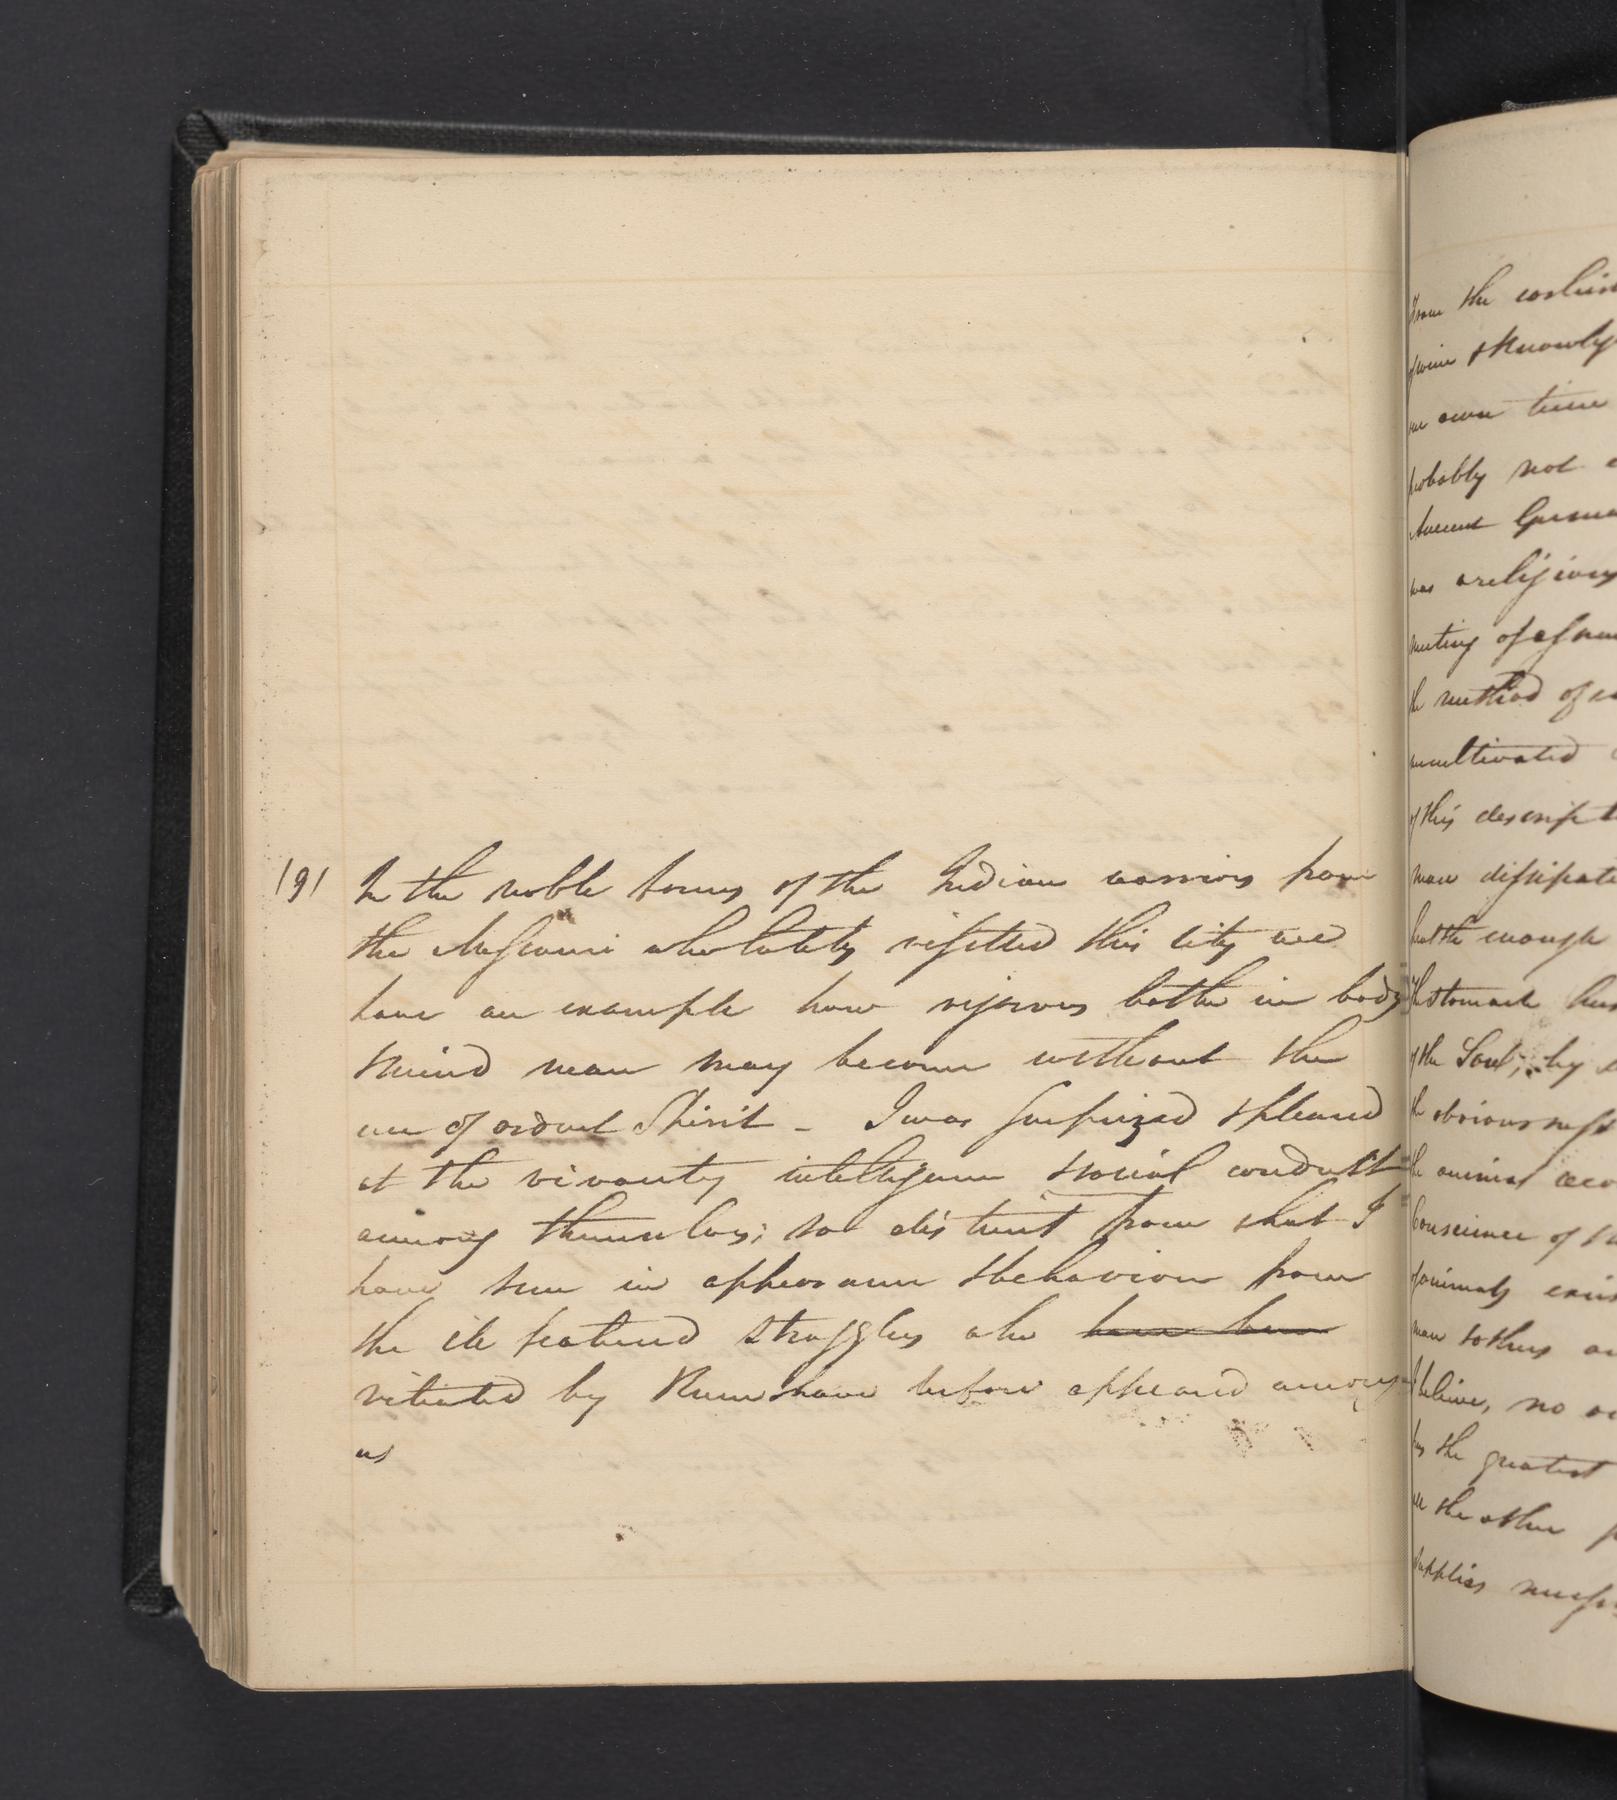 191 In the noble forms of the Indian warriors from
the Missouri who lately visitted this City we
have an example how vigorous both in body &
mind man may become without the
use of ardent Spirit - I was surprized & pleased
at the vivacity intelligence & social conduct
among themselves; so distinct from what I
have seen in appearance & behaviour from
the ill featured stragglers who have been
vitiated by Rum & have before appeared among
us
from the
& knowly
our own time
probably not
Ancient
was a religious
meeting of
the method of
uncultivated
of this descript
man dissipate
health enough
the stomach has
of the Soul; by
the obvious
the animal
Conscience of
of animals
man to thus
I believe, no
has the greatest
the other
supplies